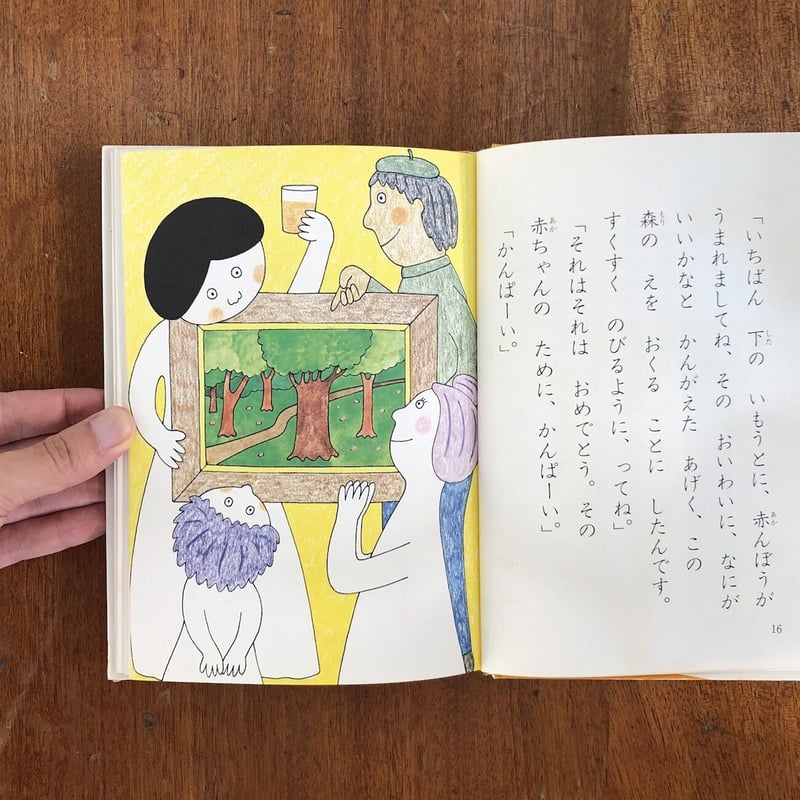 「いちばん　下の　いもうとに、赤んぼうが
うまれましてね、その　おいわいに、なにが
いいかなと　かんがえた　あげく、この
森の　えを　おくる　ことに　したんです。
すくすく　のびるように、ってね」
「それはそれは　おめでとう。その
赤ちゃんの　ために、かんぱーい」
「かんぱーい」
16